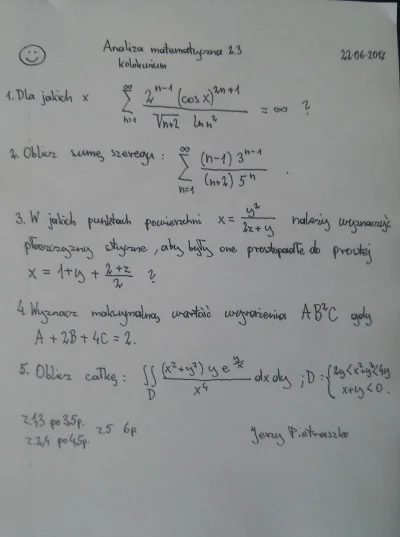 Analiza matematyczna 2.3
kolokwium
22.06.2012
1. Dla jakich x \sum_{n=1}^{\infty} \frac{2^{n-1} (\cos x)^{2n+1}}{\sqrt{n+2} \ln n^2} = \infty ?
2. Oblicz sumę szeregu : \sum_{n=1}^{\infty} \frac{(n-1) 3^{n-1}}{(n+2) 5^n} .
3. W jakich punktach powierzchni x = \frac{y^2}{2z+y} należy wyznaczyć
płaszczyzny styczne, aby były one prostopadłe do prostej
x = 1+y + \frac{2+z}{2} ?
4. Wyznacz maksymalną wartość wyrażenia AB^2C gdy
A + 2B + 4C = 2.
5. Oblicz całkę : \iint_D \frac{(x^2+y^2) y e^{\frac{y}{x}}}{x^4} dx dy ; D : \begin{cases} 2y < x^2+y^2 < 4y \\ x+y < 0 . \end{cases}
z.1,3 po 3,5p. z.5 6p.
z.2,4 po 4,5p.
Jerzy Pietraszko